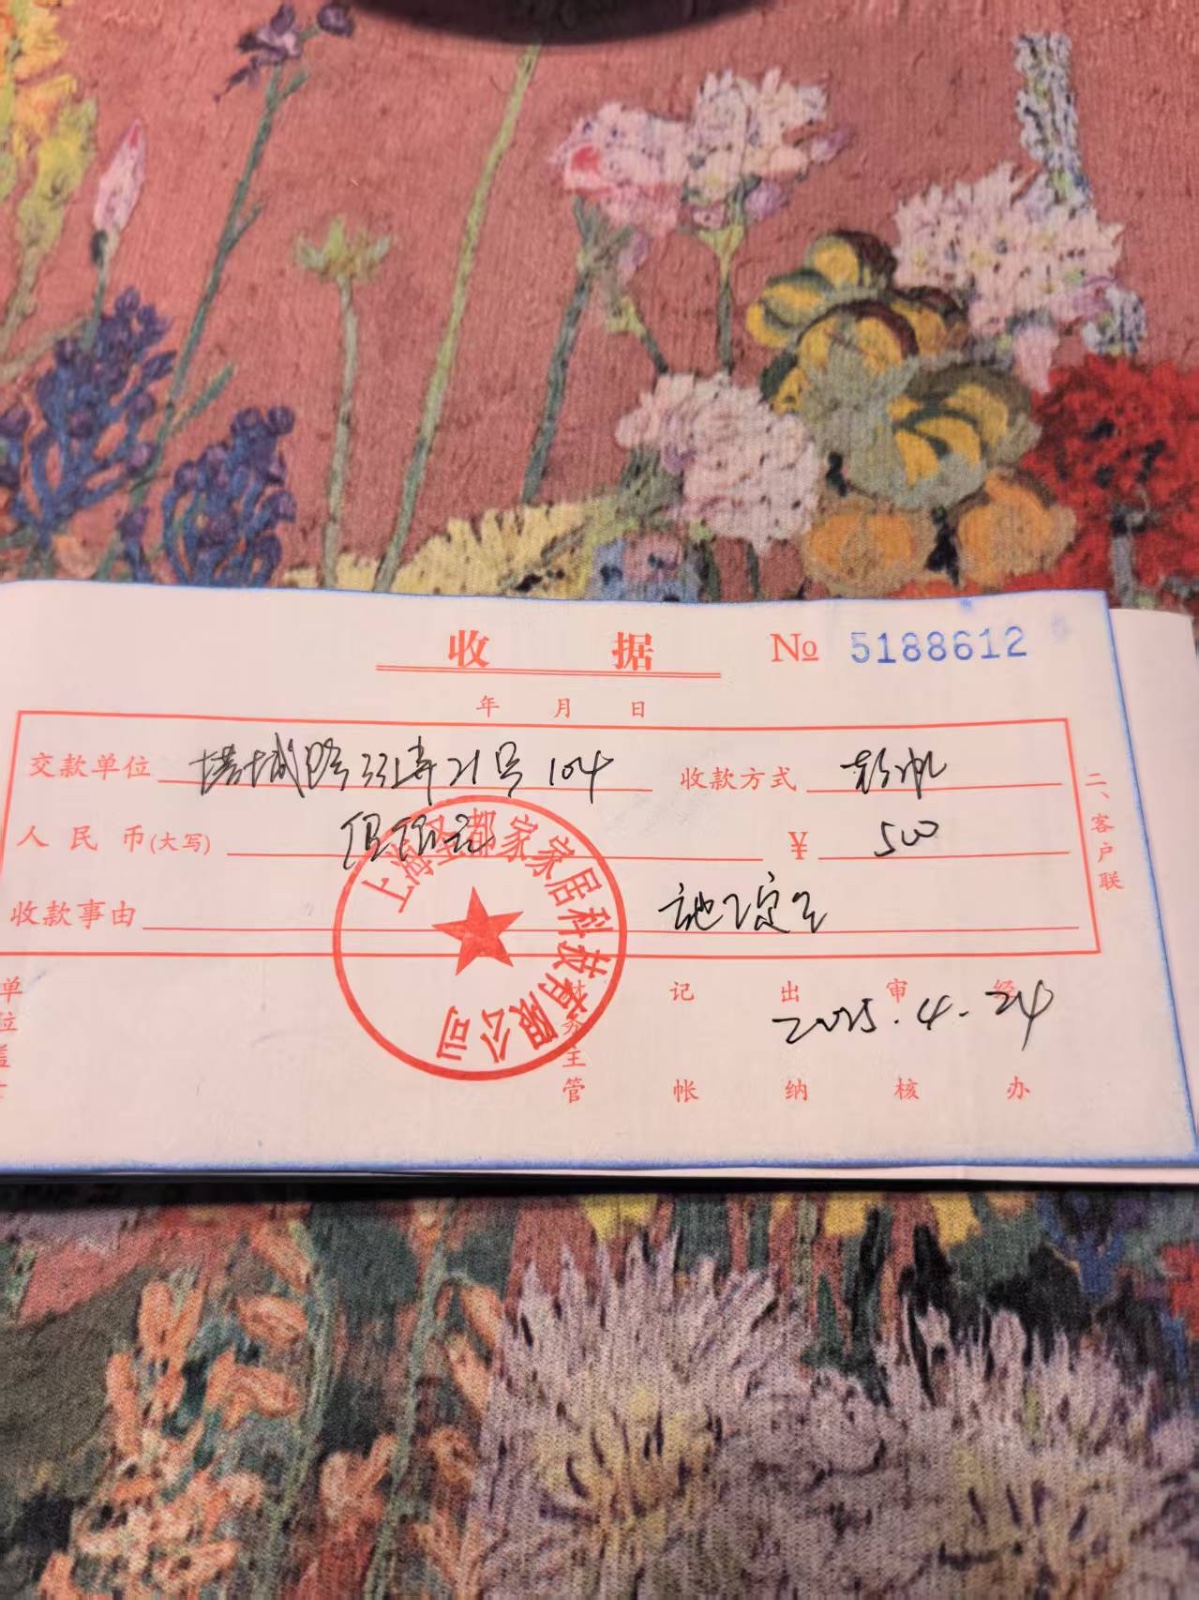 收 据 № 5188612
年 月 日
交款单位 塔城路331弄21号104 收款方式
人民币(大写) 伍佰元 ¥ 500
收款事由 施工定金
二、客户联
上海圣都家家居科技有限公司
单位盖 财务主管 记帐 出纳 审核 经办
2025.4.24